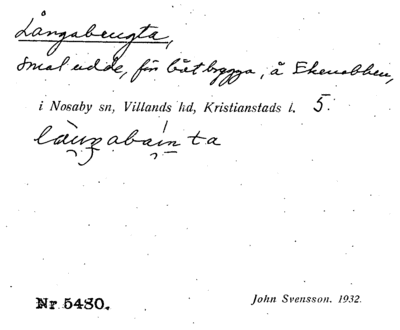 Långabengta,
smal udde, för båtbrygga, å Ekenabben,
i Nosaby sn, Villands hd, Kristianstads l. 5.
långabäinta
Nr 5480.
John Svensson. 1932.